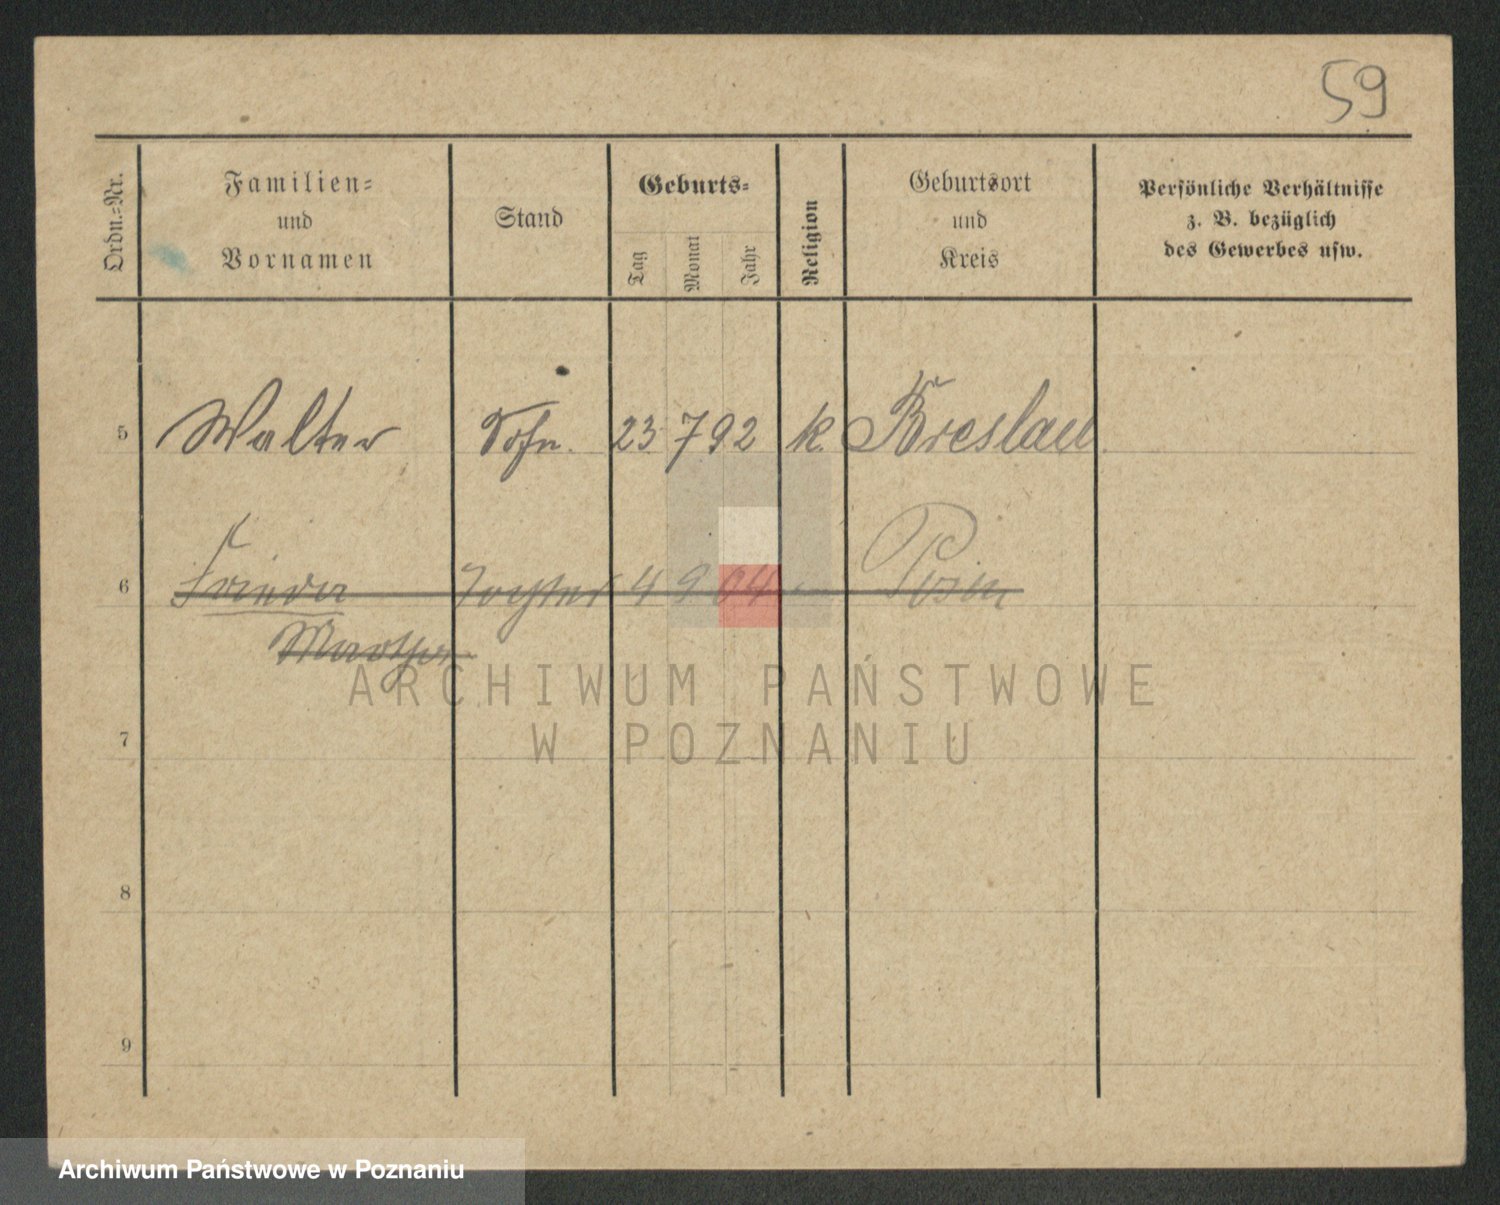 59
Ordn.-Nr.
Familien-
und
Vornamen
Stand
Geburts-
Tag
Monat
Jahr
Religion
Geburtsort
und
Kreis
Persönliche Verhältnisse
z. B. bezüglich
des Gewerbes usw.
5 Walter Sohn. 23 7 92 k. Breslau
6 Frieda Tochter 4 9 04 Posen
Martha
7
8
9
ARCHIWUM PAŃSTWOWE
W POZNANIU
Archiwum Państwowe w Poznaniu